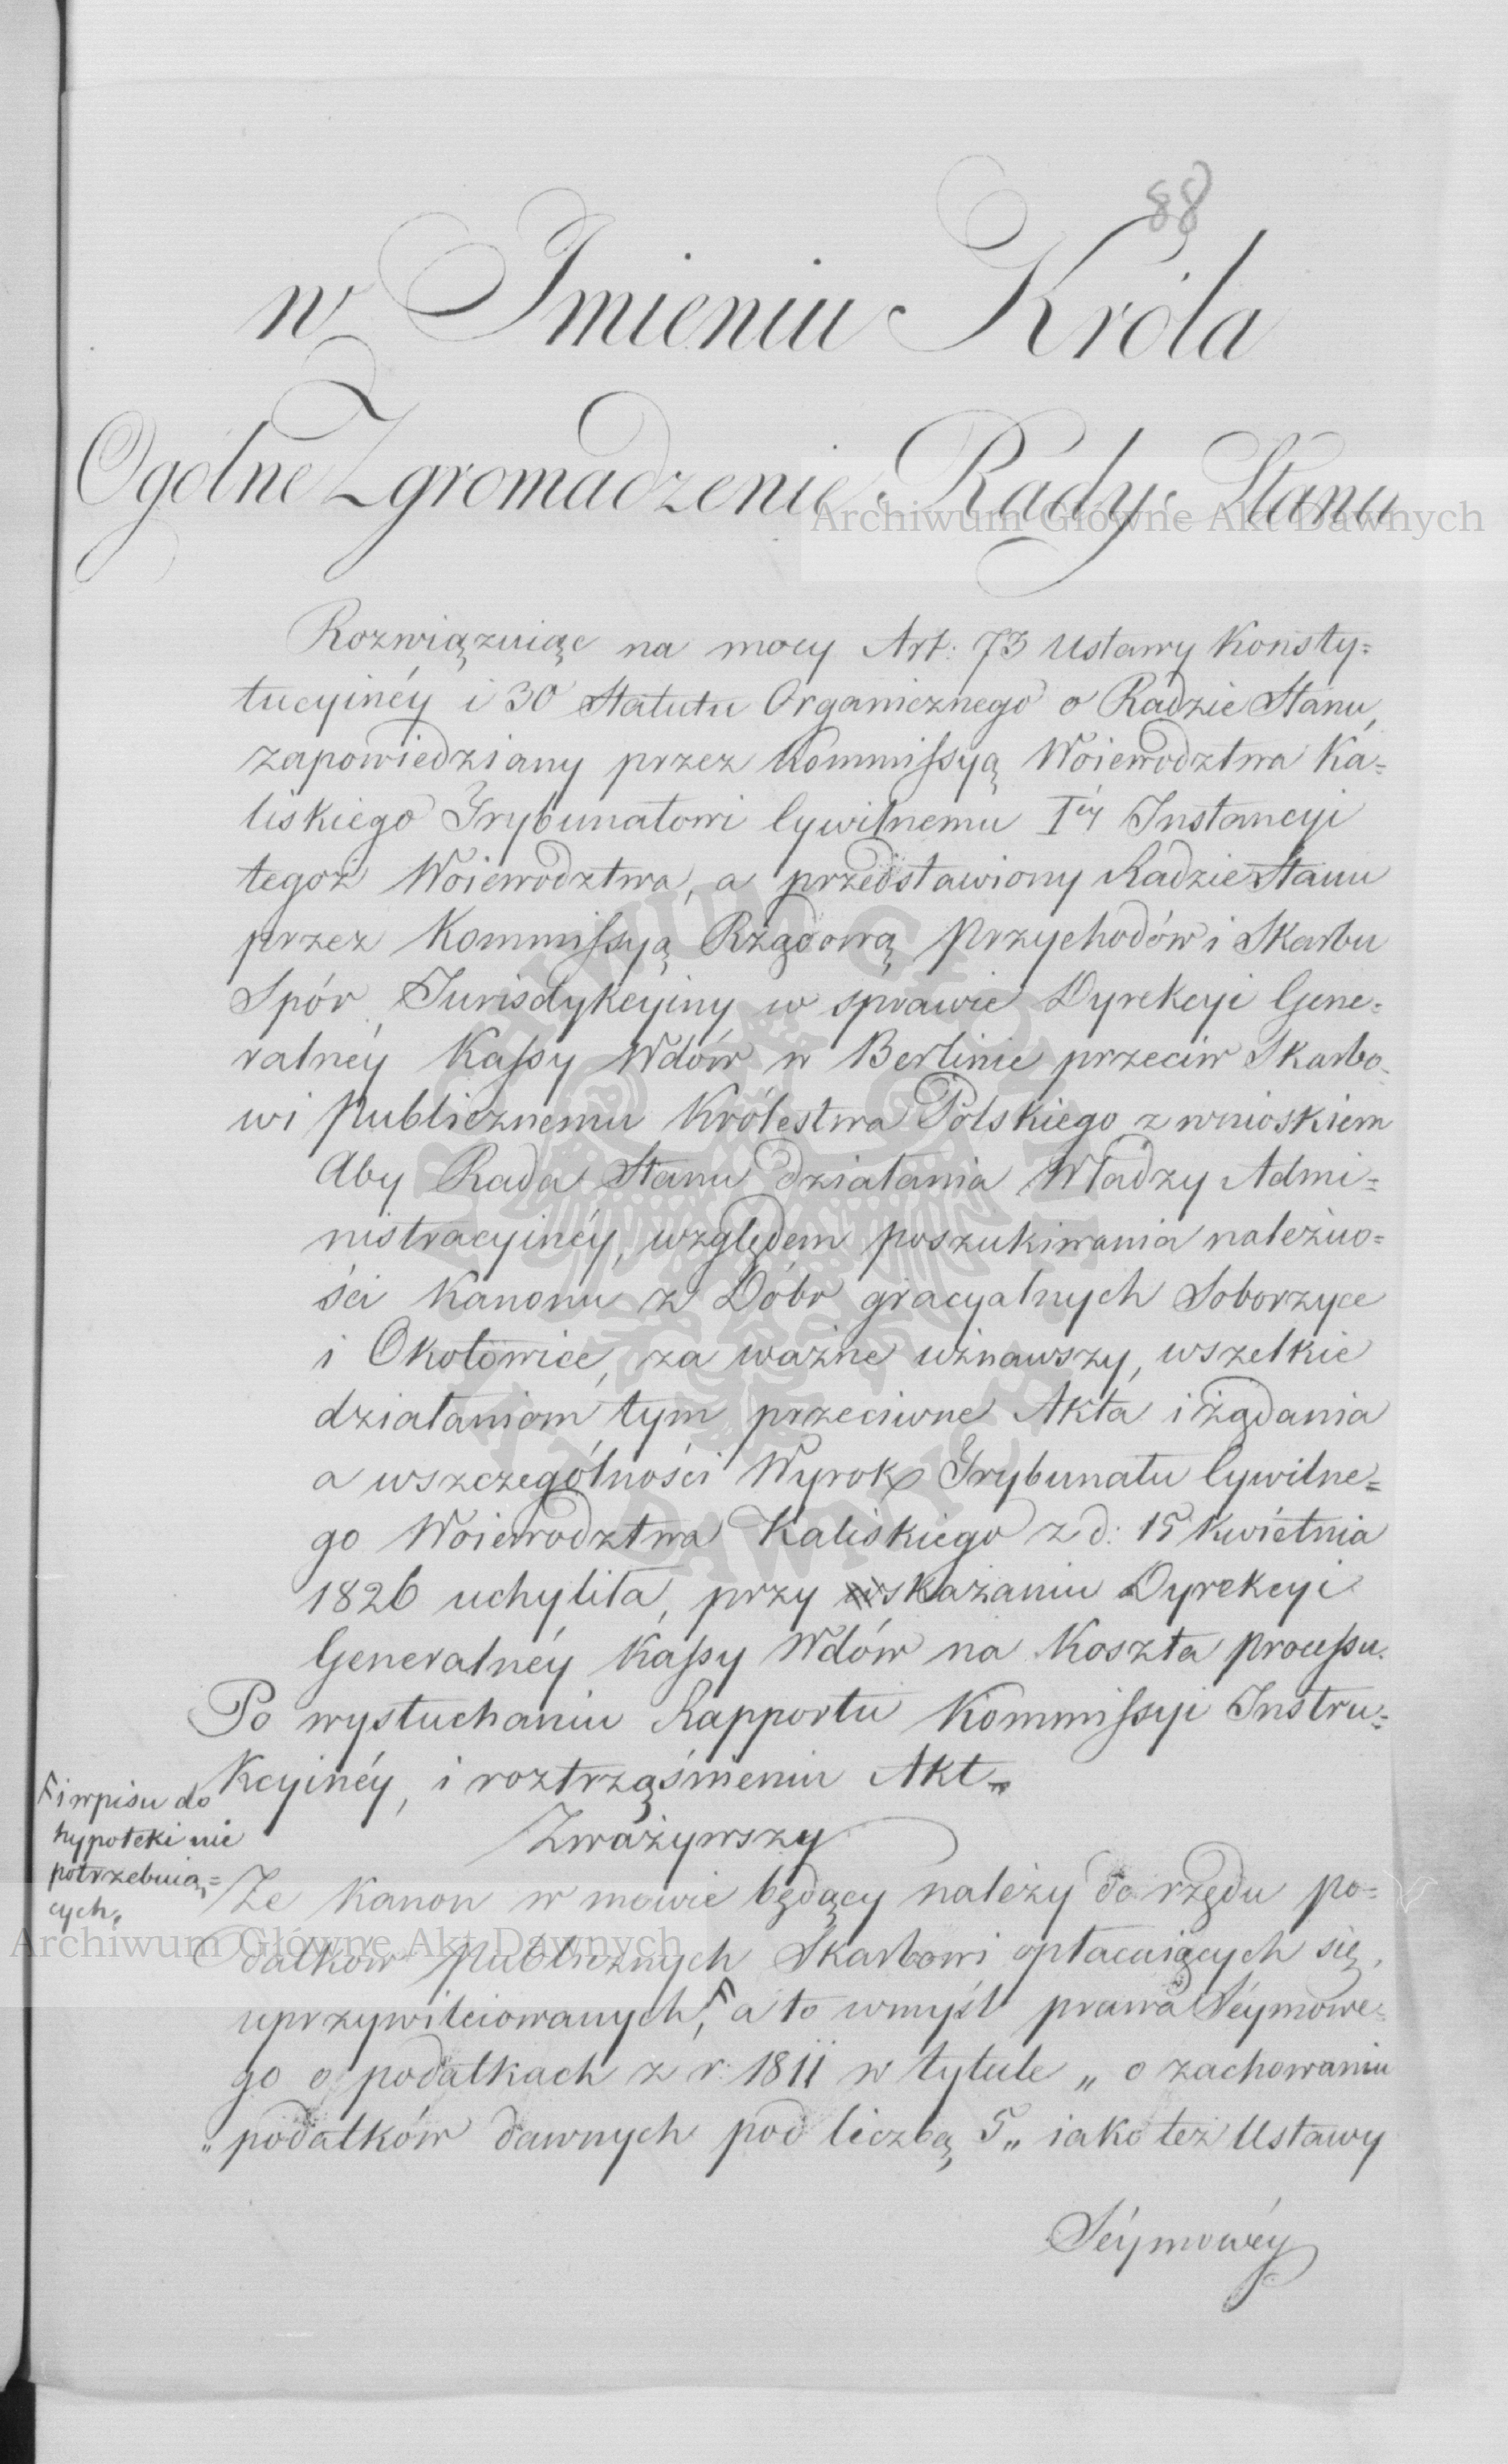 88
w Imieniu Króla
Ogolne Zgromadzenie Rady Stanu
Archiwum Główne Akt Dawnych
Rozwiązuiąc na mocy Art: 73 Ustawy Konsty=
tucyinéy i 30 Statutu Organicznego o Radzie Stanu,
zapowiedziany przez Kommissyą Woiewodztwa Ka=
liskiego Trybunałowi Cywilnemu Iéy Instancyi
tegoż Woiewodztwa, a przedstawiony Radzie Stanu
przez Kommissyą Rządową Przychodów i Skarbu
Spór Jurisdykcyiny w sprawie Dyrekcyi Gene=
ralnéy Kassy Wdów w Berlinie przeciw Skarbo=
wi Publicznemu Królestwa Polskiego z wnioskiem
Aby Rada Stanu działania Władzy Admi=
nistracyinéy, względem poszukiwania należno=
ści Kanonu z Dóbr gracyalnych Soborzyce
i Okołowice, za ważne uznawszy, wszelkie
działaniom tym przeciwne Akta i żądania
a wszczególności Wyrok Trybunału Cywilne=
go Woiewodztwa Kaliskiego z d: 15 Kwietnia
1826 uchyliła, przy skazaniu Dyrekcyi
Generalnéy Kassy Wdów na Koszta processu.
Po wysłuchaniu Rapportu Kommissyi Instru=
kcyinéy, i roztrząśnieniu Akt.
Zważywszy
Że Kanon w mowie będący należy do rzędu po=
datków Publicznych Skarbowi opłacaiących się,
uprzywileiowanych, F a to wmyśl prawa Séymowe=
go o podatkach z r: 1811 w tytule „ o zachowaniu
„ podatków dawnych pod liczbą 5 „ iako też Ustawy
Séymowéy
F i wpisu do
hypoteki nie
potrzebuią=
cych,
Archiwum Główne Akt Dawnych
ARCHIWUM GŁÓWNE AKT DAWNYCH